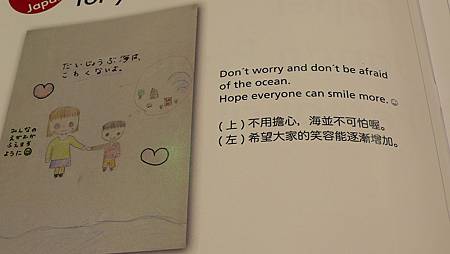 Japa
だいじょうぶ海は、
こわくないよ。
みんなの
えがおが
ふえます
ように
Don't worry and don't be afraid
of the ocean.
Hope everyone can smile more.☺
(上)不用擔心，海並不可怕喔。
(左)希望大家的笑容能逐漸增加。